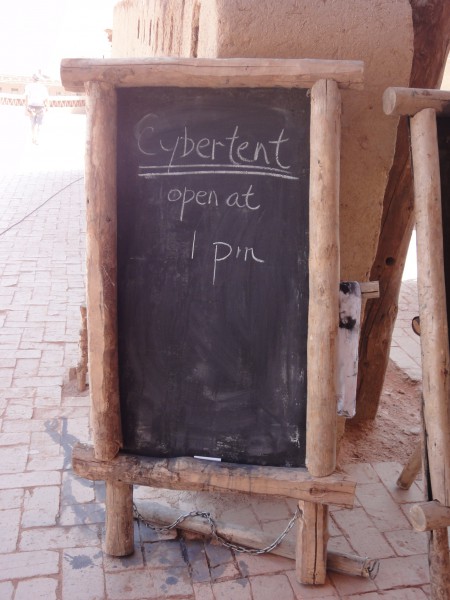 Cybertent
open at
1 pm